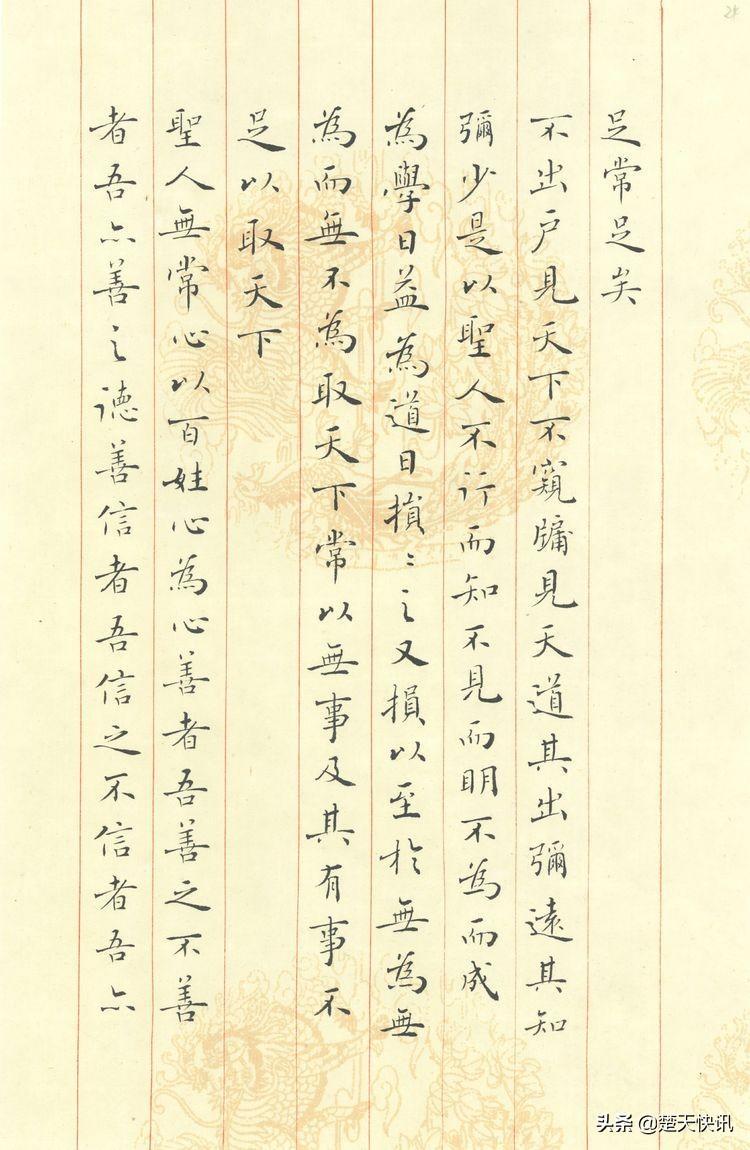 足常足矣
不出户見天下不窺牖見天道其出彌遠其知
彌少是以聖人不行而知不見而明不為而成
為學日益為道日損〻之又損以至於無為無
為而無不為取天下常以無事及其有事不
足以取天下
聖人無常心以百姓心為心善者吾善之不善
者吾亦善之德善信者吾信之不信者吾亦
24
头条 @楚天快讯